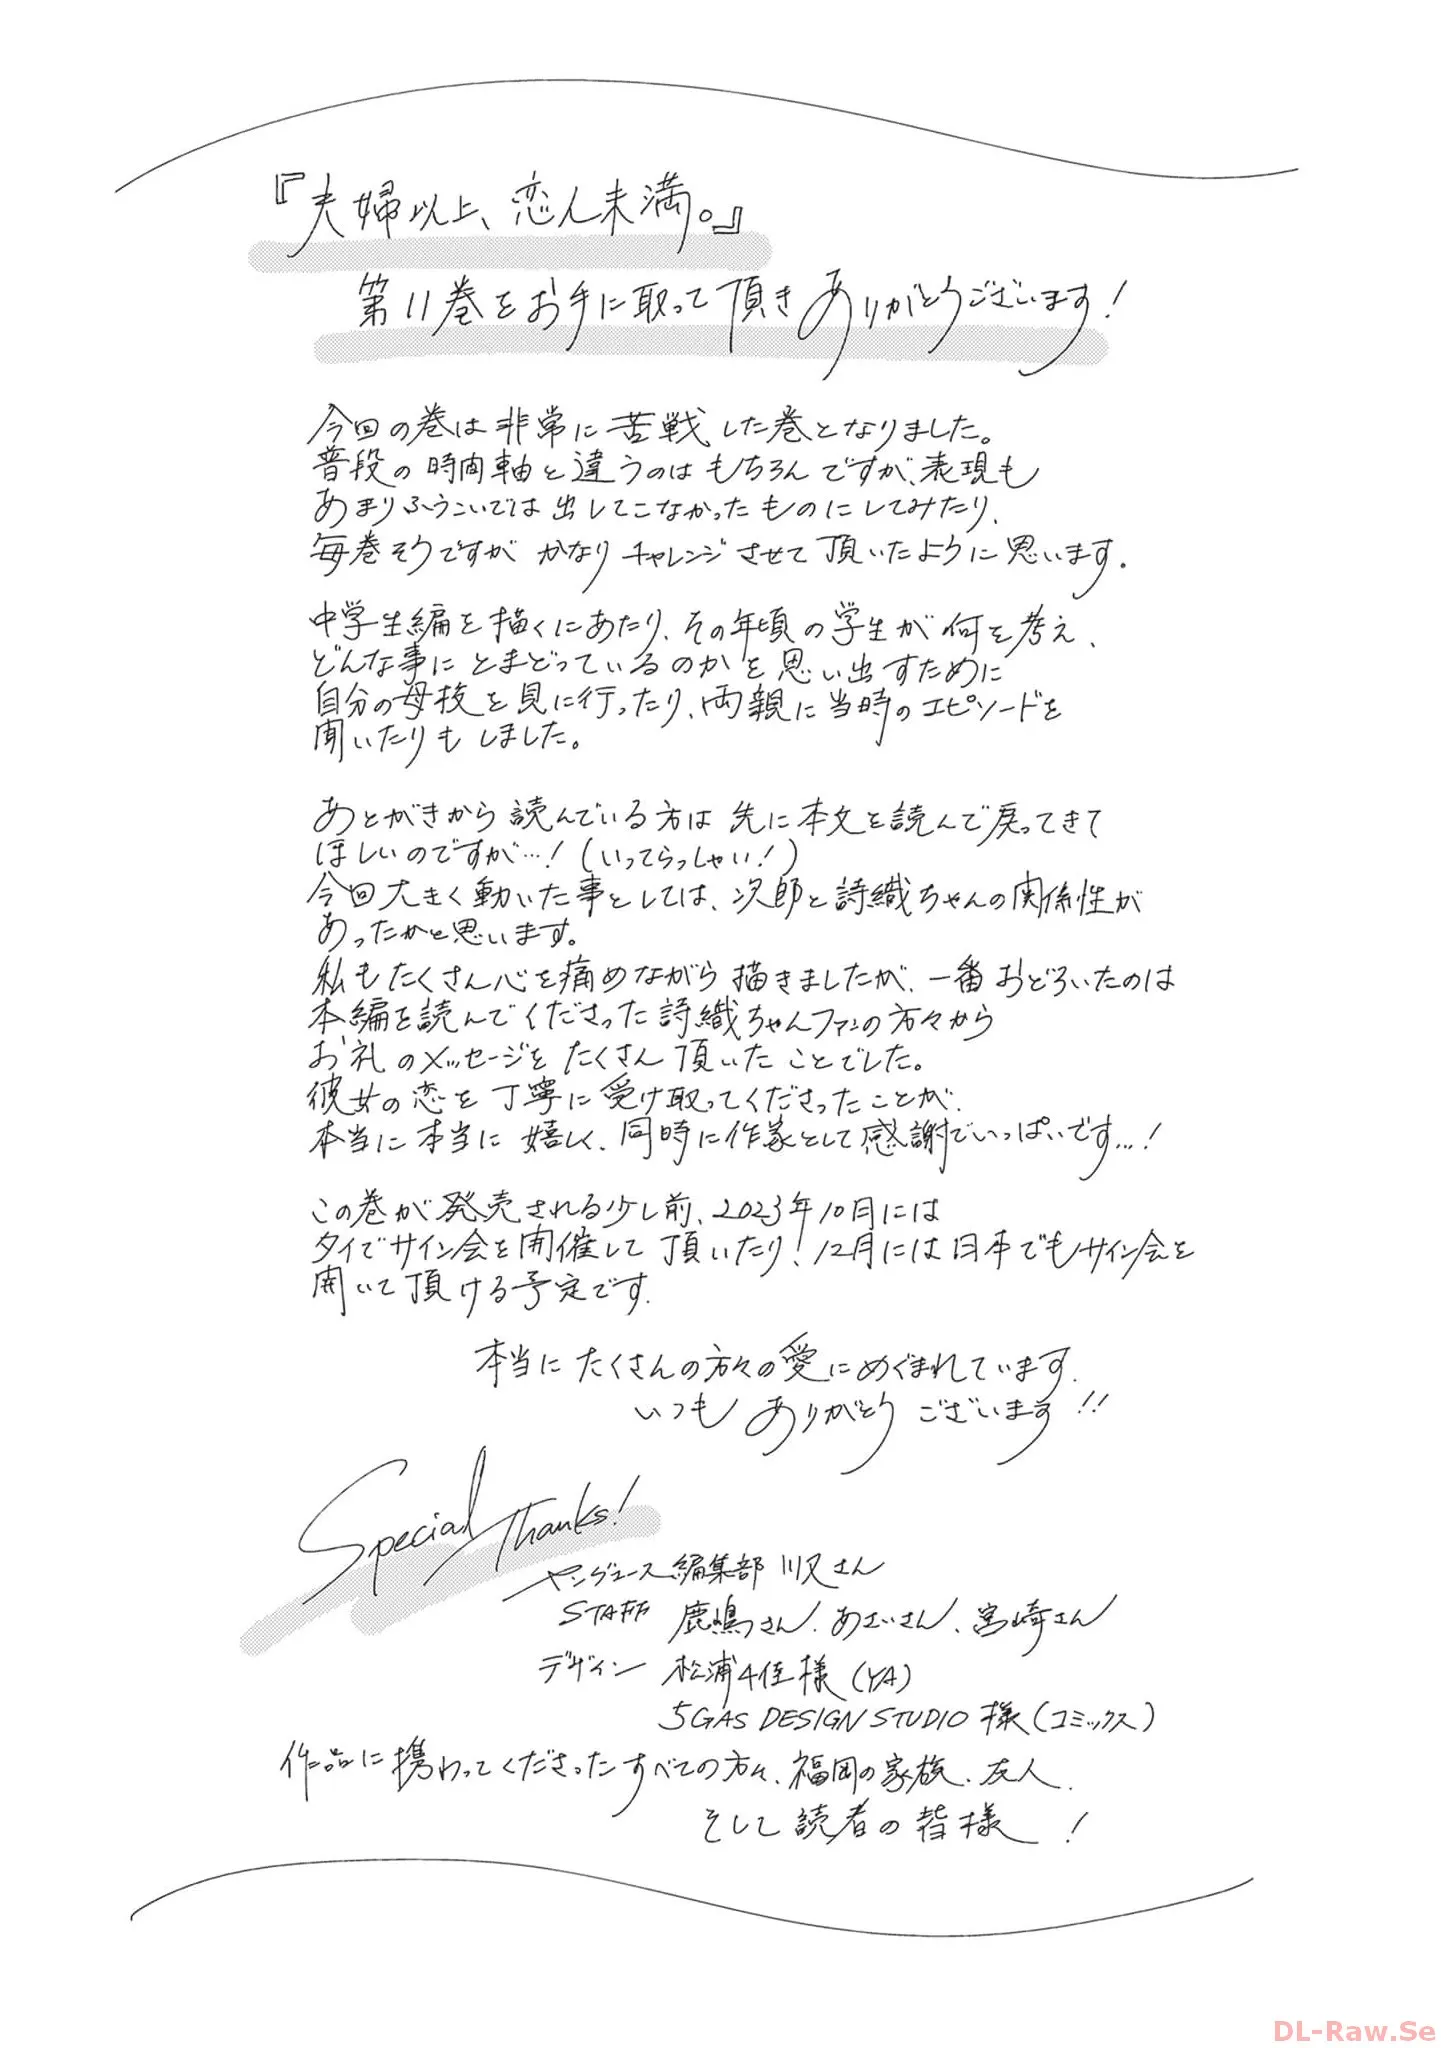 『夫婦以上、恋人未満。』
第11巻をお手に取って頂きありがとうございます!
今回の巻は非常に苦戦した巻となりました。
普段の時間軸と違うのはもちろんですが、表現も
あまりふうこいでは出してこなかったものにしてみたり、
毎巻そうですがかなりチャレンジさせて頂いたように思います。
中学生編を描くにあたり、その年頃の学生が何を考え、
どんな事にとまどっているのかを思い出すために
自分の母校を見に行ったり、両親に当時のエピソードを
聞いたりもしました。
あとがきから読んでいる方は先に本文を読んで戻ってきて
ほしいのですが…!(いってらっしゃい!)
今回大きく動いた事としては、次郎と詩織ちゃんの関係性が
あったかと思います。
私もたくさん心を痛めながら描きましたが、一番おどろいたのは
本編を読んでくださった詩織ちゃんファンの方々から
お礼のメッセージをたくさん頂いたことでした。
彼女の恋を丁寧に受け取ってくださったことが、
本当に本当に嬉しく、同時に作家として感謝でいっぱいです…!
この巻が発売される少し前、2023年10月には
タイでサイン会を開催して頂いたり!12月には日本でもサイン会を
開いて頂ける予定です.
本当にたくさんの方々の愛にめぐまれています.
いつもありがとうございます!!
Special Thanks!
ヤングエース編集部 川又さん
STAFF 鹿嶋さん、あさいさん、宮崎さん
デザイン 松浦4佳様(YA)
5GAS DESIGN STUDIO 様(コミックス)
作品に携わってくださったすべての方々、福岡の家族、友人、
そして読者の皆様!
DL-Raw.Se